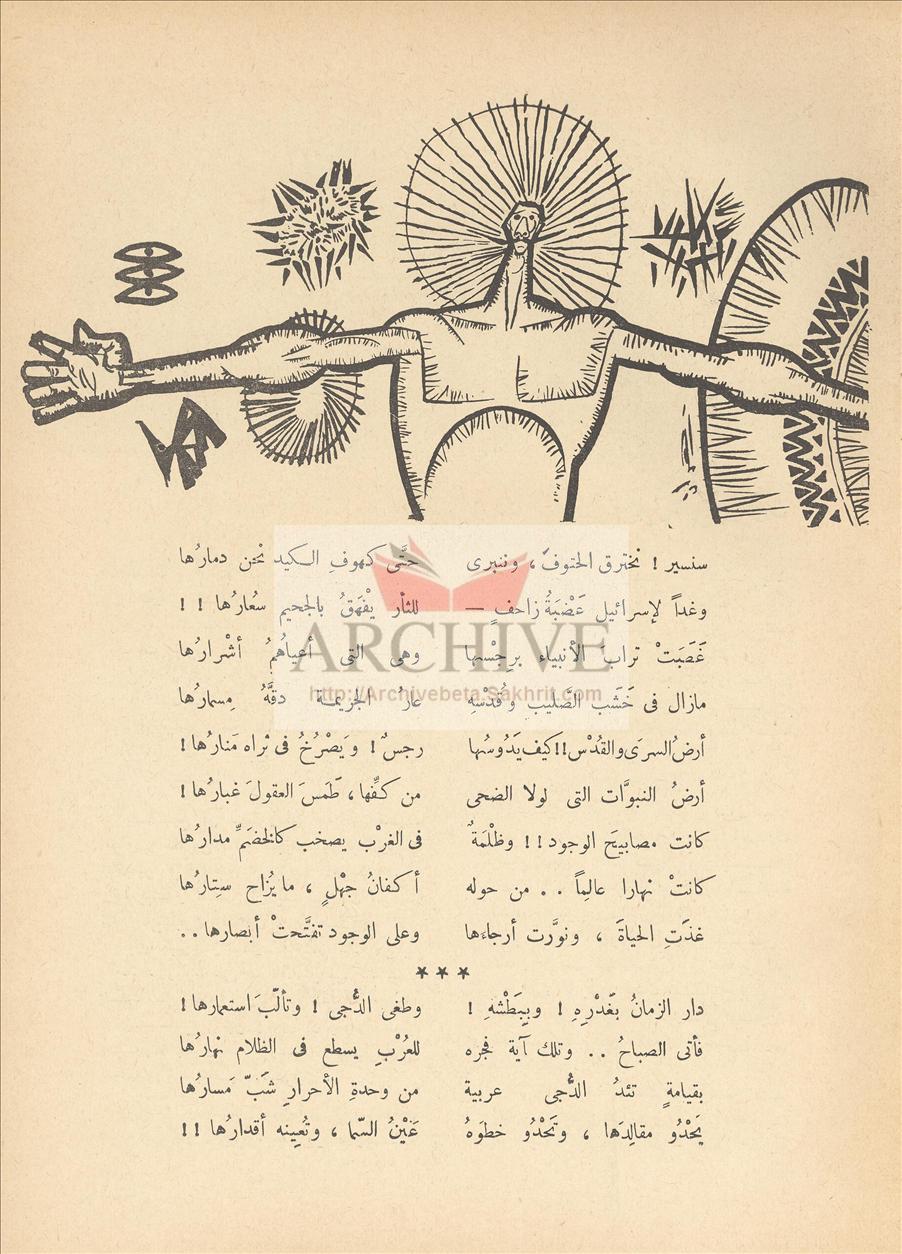 سنسير ! نخترق الحتوفَ ، وننبرى حتَّى كهوفِ الكيد نحْن دمارُها
وغداً لإسرائيل غَضْبَةُ زاحفٍ — للثأر يفْهَقُ بالجحيم سُعارُها ! !
غَصَبَتْ تراب الأنبياء برِجْسها وهى التى أعياهُمُ أشْرارُها
مازال فى خَشَب الصَّليب وقُدْسِه عارُ الجريمة دقَّهُ مِسمارُها
أرضُ السرَى والقُدْس !! كيف يَدُوسُها رجسٌ ! ويَصْرُخُ فى ثراه مَنارُها !
أرضُ النبوَّات التى لولا الضحى من كفِّها ، طَمَسَ العقولَ غبارُها !
كانت مصابيحَ الوجود !! وظُلْمَةٌ فى الغرْب يصخب كالخضَمِّ مدارُها
كانتْ نهارا عالِماً . . من حوله أكفانُ جهْلٍ ، ما يُزاح سِتارُها
غذَتِ الحياةَ ، ونوَّرت أرجاءَها وعلى الوجود تفتَّحتْ أبصارها . .
***
دار الزمانُ بغَدْرِهِ ! وببَطْشهِ ! وطغى الدُّجى ! وتألّبَ استعمارها !
فأتى الصباحُ . . وتلك آية فجره للعُرْبِ يسطع فى الظلام نهارُها
بقيامةٍ تئدُ الدُّجى عربية من وحدةِ الأحرارِ شَبَّ مَسارُها
يَحْدُو مقالِدَها ، وتَحْدُو خطوَهُ عَيْنُ السَّما ، وتُعِينه أقدارُها !!
ARCHIVE
http://Archivebeta.Sakhrit.com